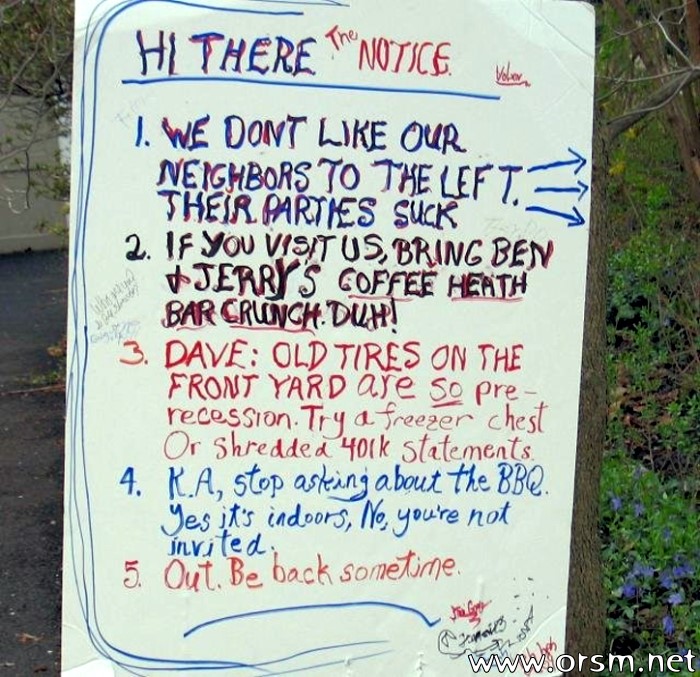 HI THERE The NOTICE
1. WE DONT LIKE OUR
NEIGHBORS TO THE LEFT.
THEIR PARTIES SUCK
2. IF YOU VISIT US, BRING BEN
& JERRY'S COFFEE HEATH
BAR CRUNCH. DUH!
3. DAVE: OLD TIRES ON THE
FRONT YARD are so pre-
recession. Try a freezer chest
Or shredded 401k statements.
4. K.A, stop asking about the BBQ.
Yes it's indoors, No, you're not
invited.
5. Out. Be back sometime.
www.orsm.net